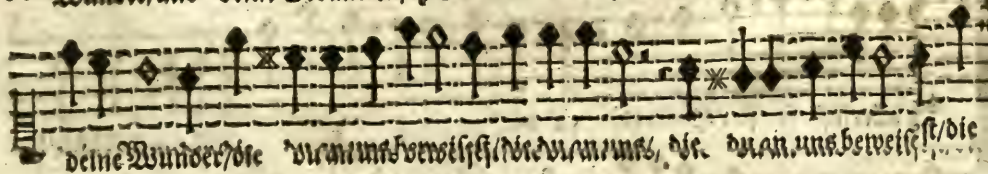 deine Wunder/die du an uns beweisest/die du an uns, die du an uns beweisest/die